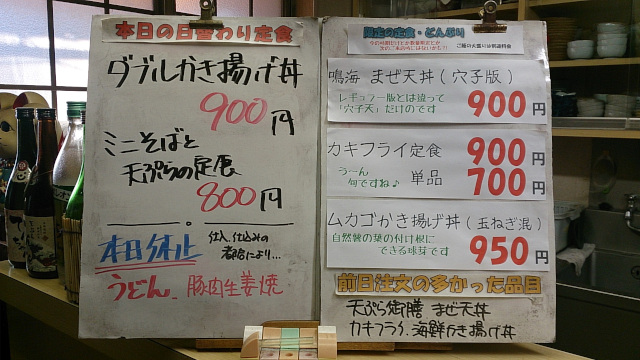 本日の日替わり定食
ダブルかき揚げ丼
900円
ミニそばと
天ぷらの定食
800円
本日休止
仕入、仕込みの
都合により...
うどん、豚肉生姜焼
限定の定食・どんぶり
ご飯の大盛りは別途料金
鳴海 まぜ天丼(穴子版)
レギュラー版とは違って
「穴子天」だけのです
900円
カキフライ定食 900円
うーん
旬ですね♪
単品 700円
ムカゴかき揚げ丼(玉ねぎ混)
自然薯の葉の付け根に
できる球芽です
950円
前日注文の多かった品目
天ぷら御膳 まぜ天丼
カキフライ、海鮮かき揚げ丼